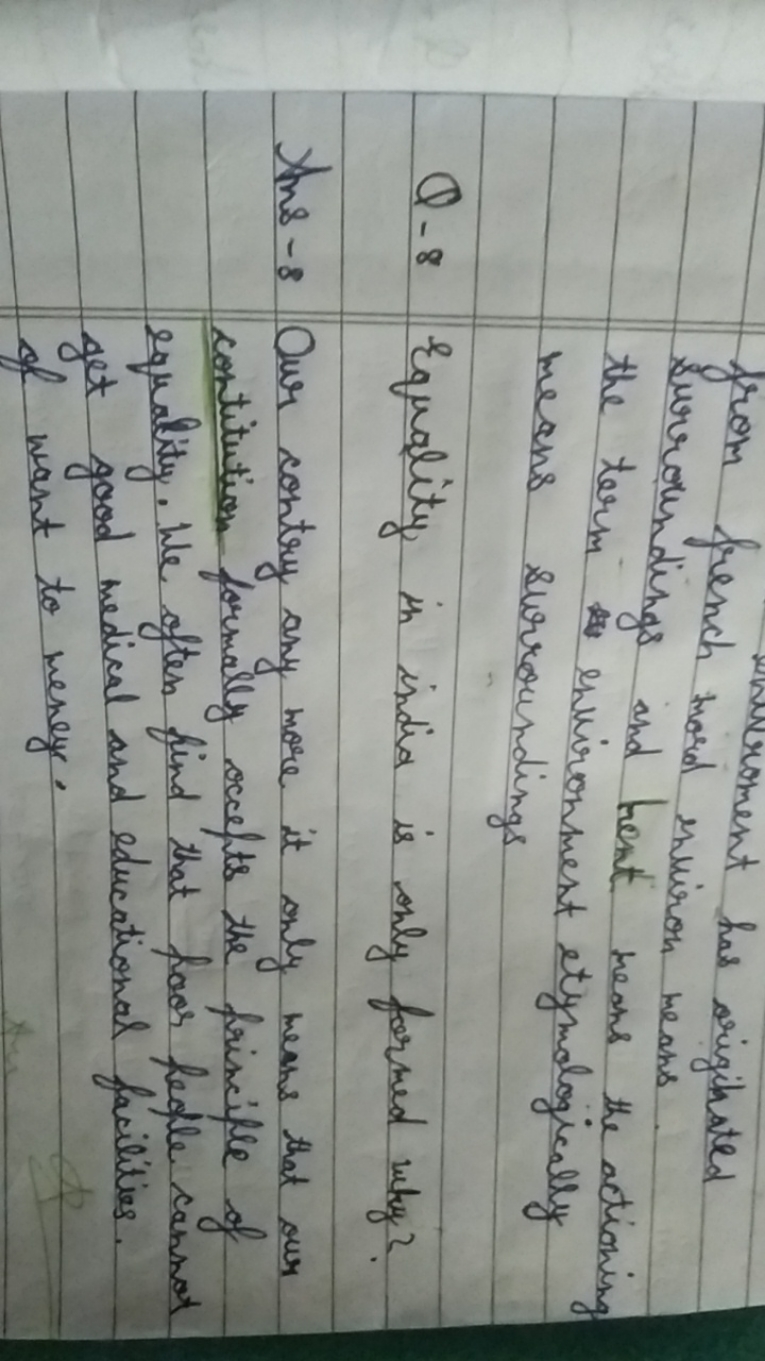 enviroment has originated
from french word environ means
surroundings and ment means the actioning
the term environment etymologically
means surroundings
Q-8 Equality in india is only formed why?
Ans-8 Our contry any more it only means that our
contitution formally accepts the principle of
equality. We often find that poor people cannot
get good medical and educational facilities.
of want to meney.